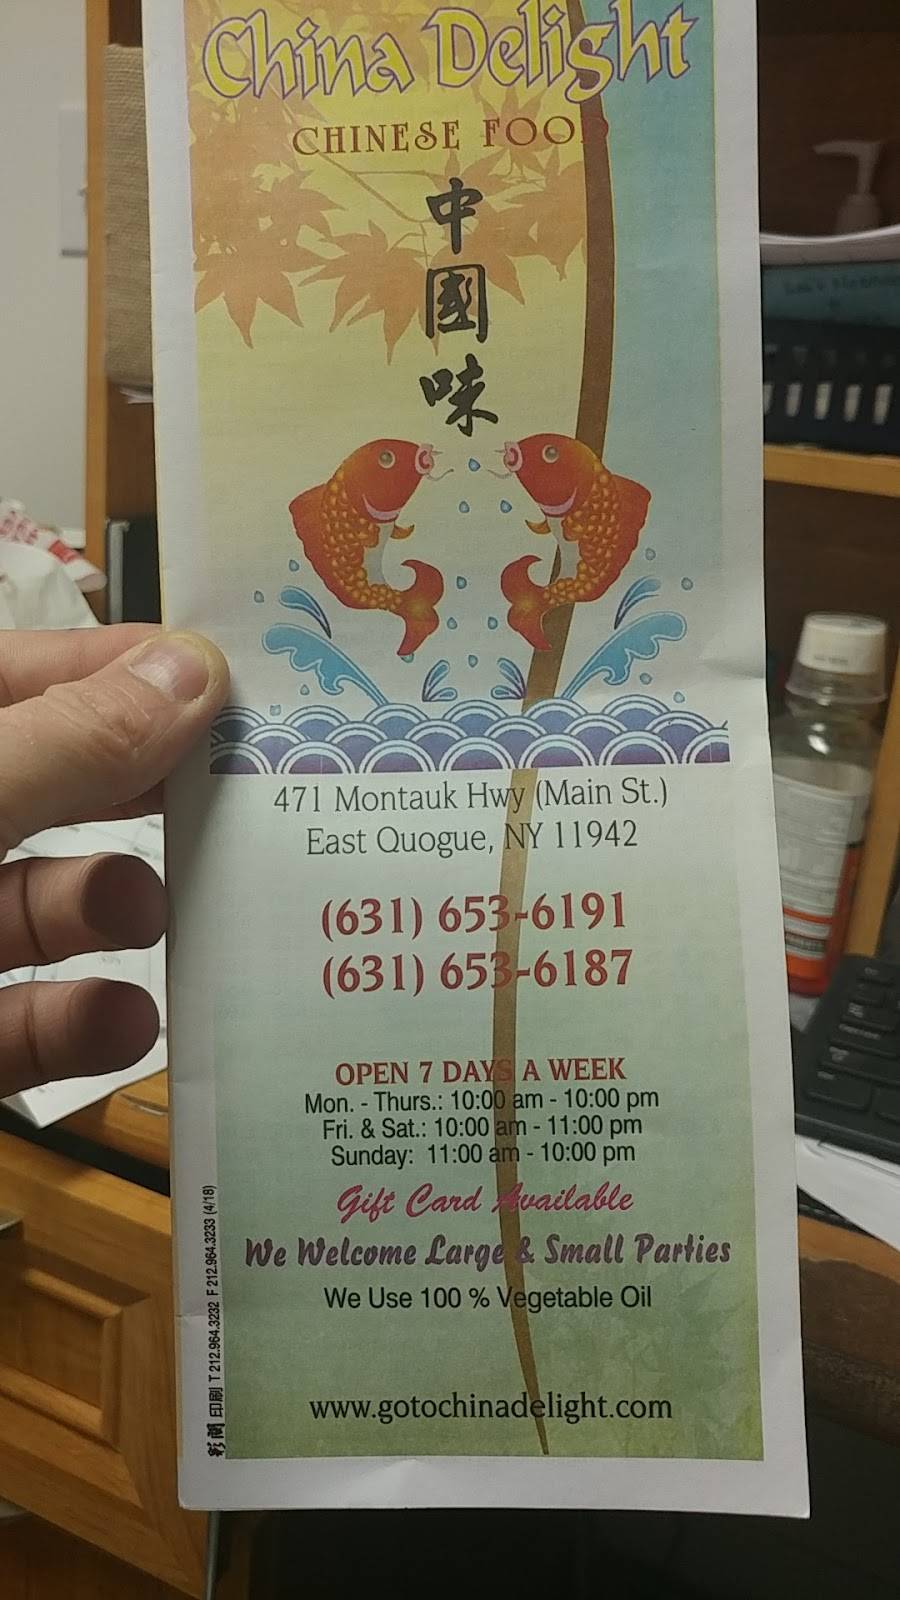 China Delight
CHINESE FOOD
中
國
味
471 Montauk Hwy (Main St.)
East Quogue, NY 11942
(631) 653-6191
(631) 653-6187
OPEN 7 DAYS A WEEK
Mon. - Thurs.: 10:00 am - 10:00 pm
Fri. & Sat.: 10:00 am - 11:00 pm
Sunday: 11:00 am - 10:00 pm
Gift Card Available
We Welcome Large & Small Parties
We Use 100 % Vegetable Oil
www.gotochinadelight.com
印刷 T 212.964.3232 F 212.964.3233 (4/18)